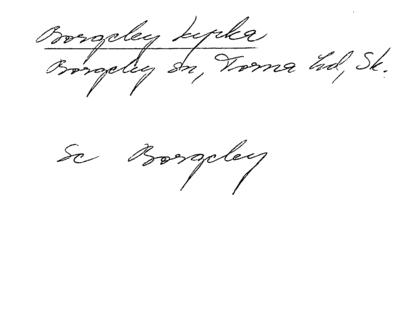 Borgeley Lupka
Borgeley Sn, Torna Ld, Sk.
Sc Borgeley